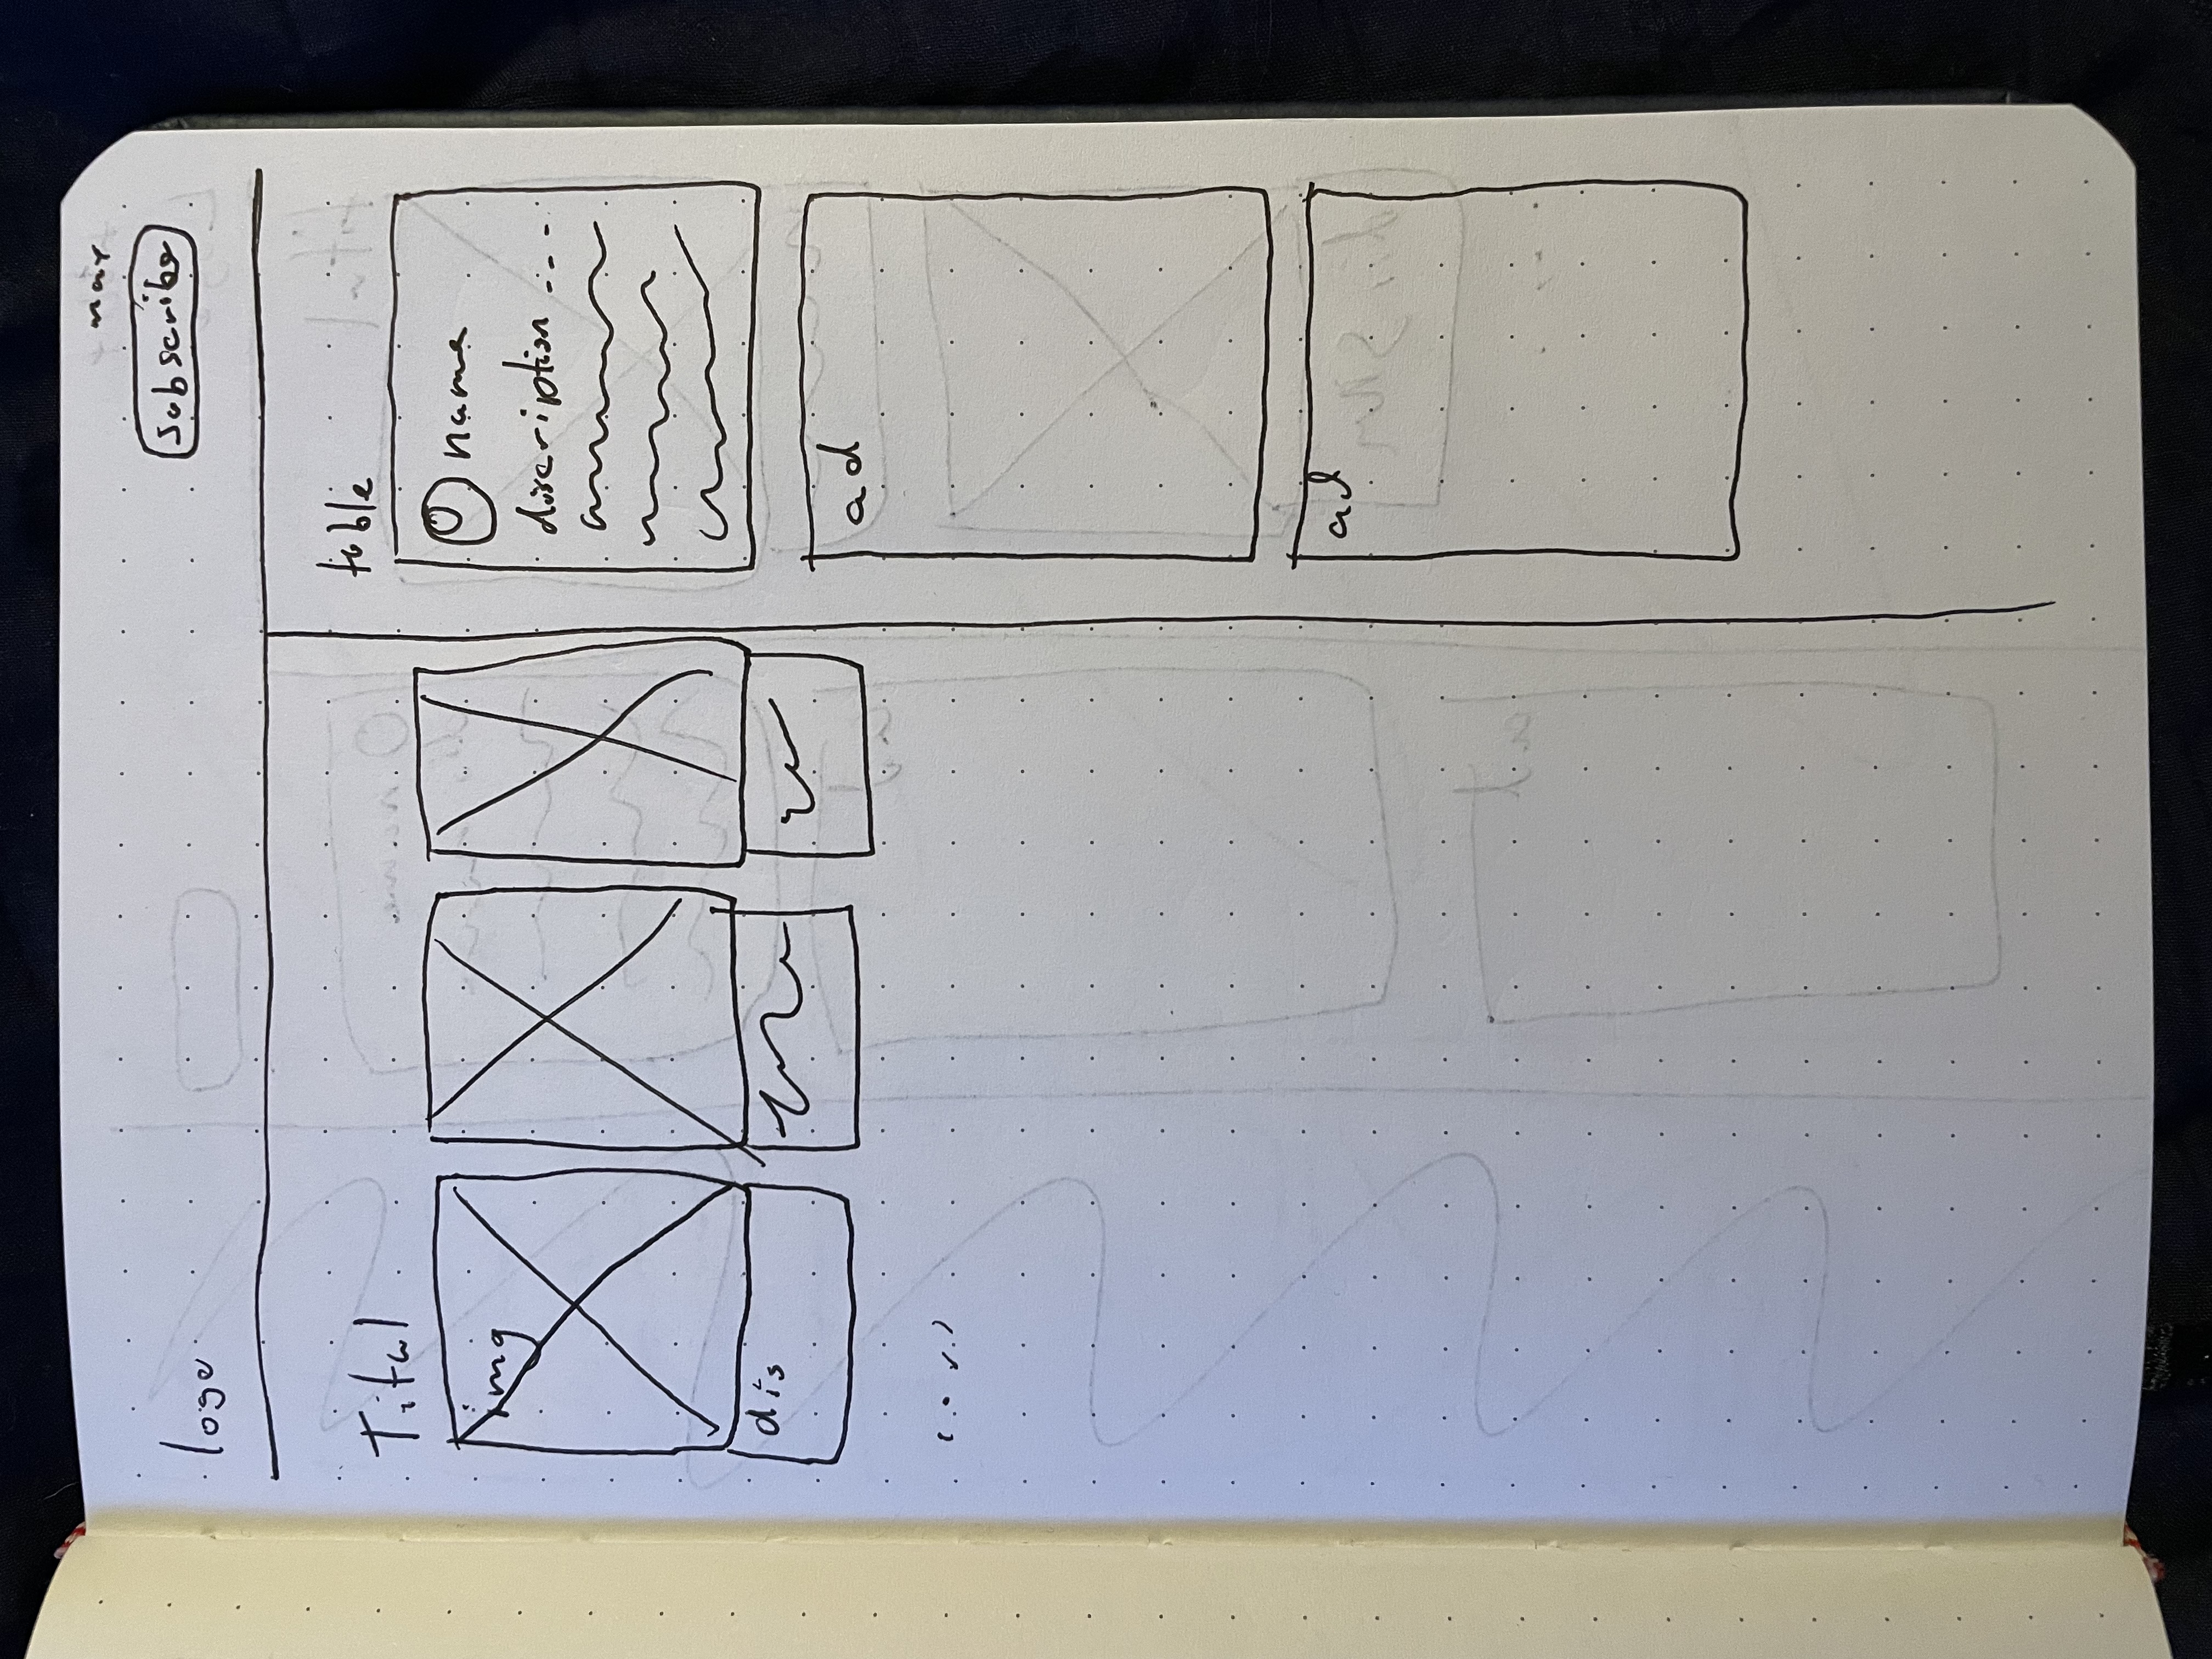 logo
subscribe
Tital
img
dis
table
name
discription ...
ad
ad